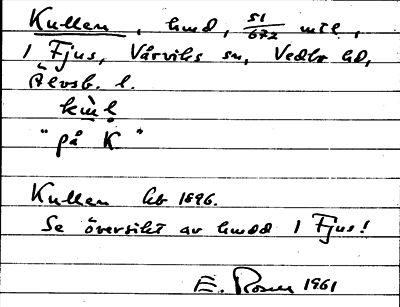 Kullen, hmd, 51/672 mtl,
1 Fjus, Vårviks sn, Vedbo hd,
Älvsb. l.
"på K"
Kullen hb 1896.
Se översikt av hmdd 1 Fjus!
E. Rosen 1961